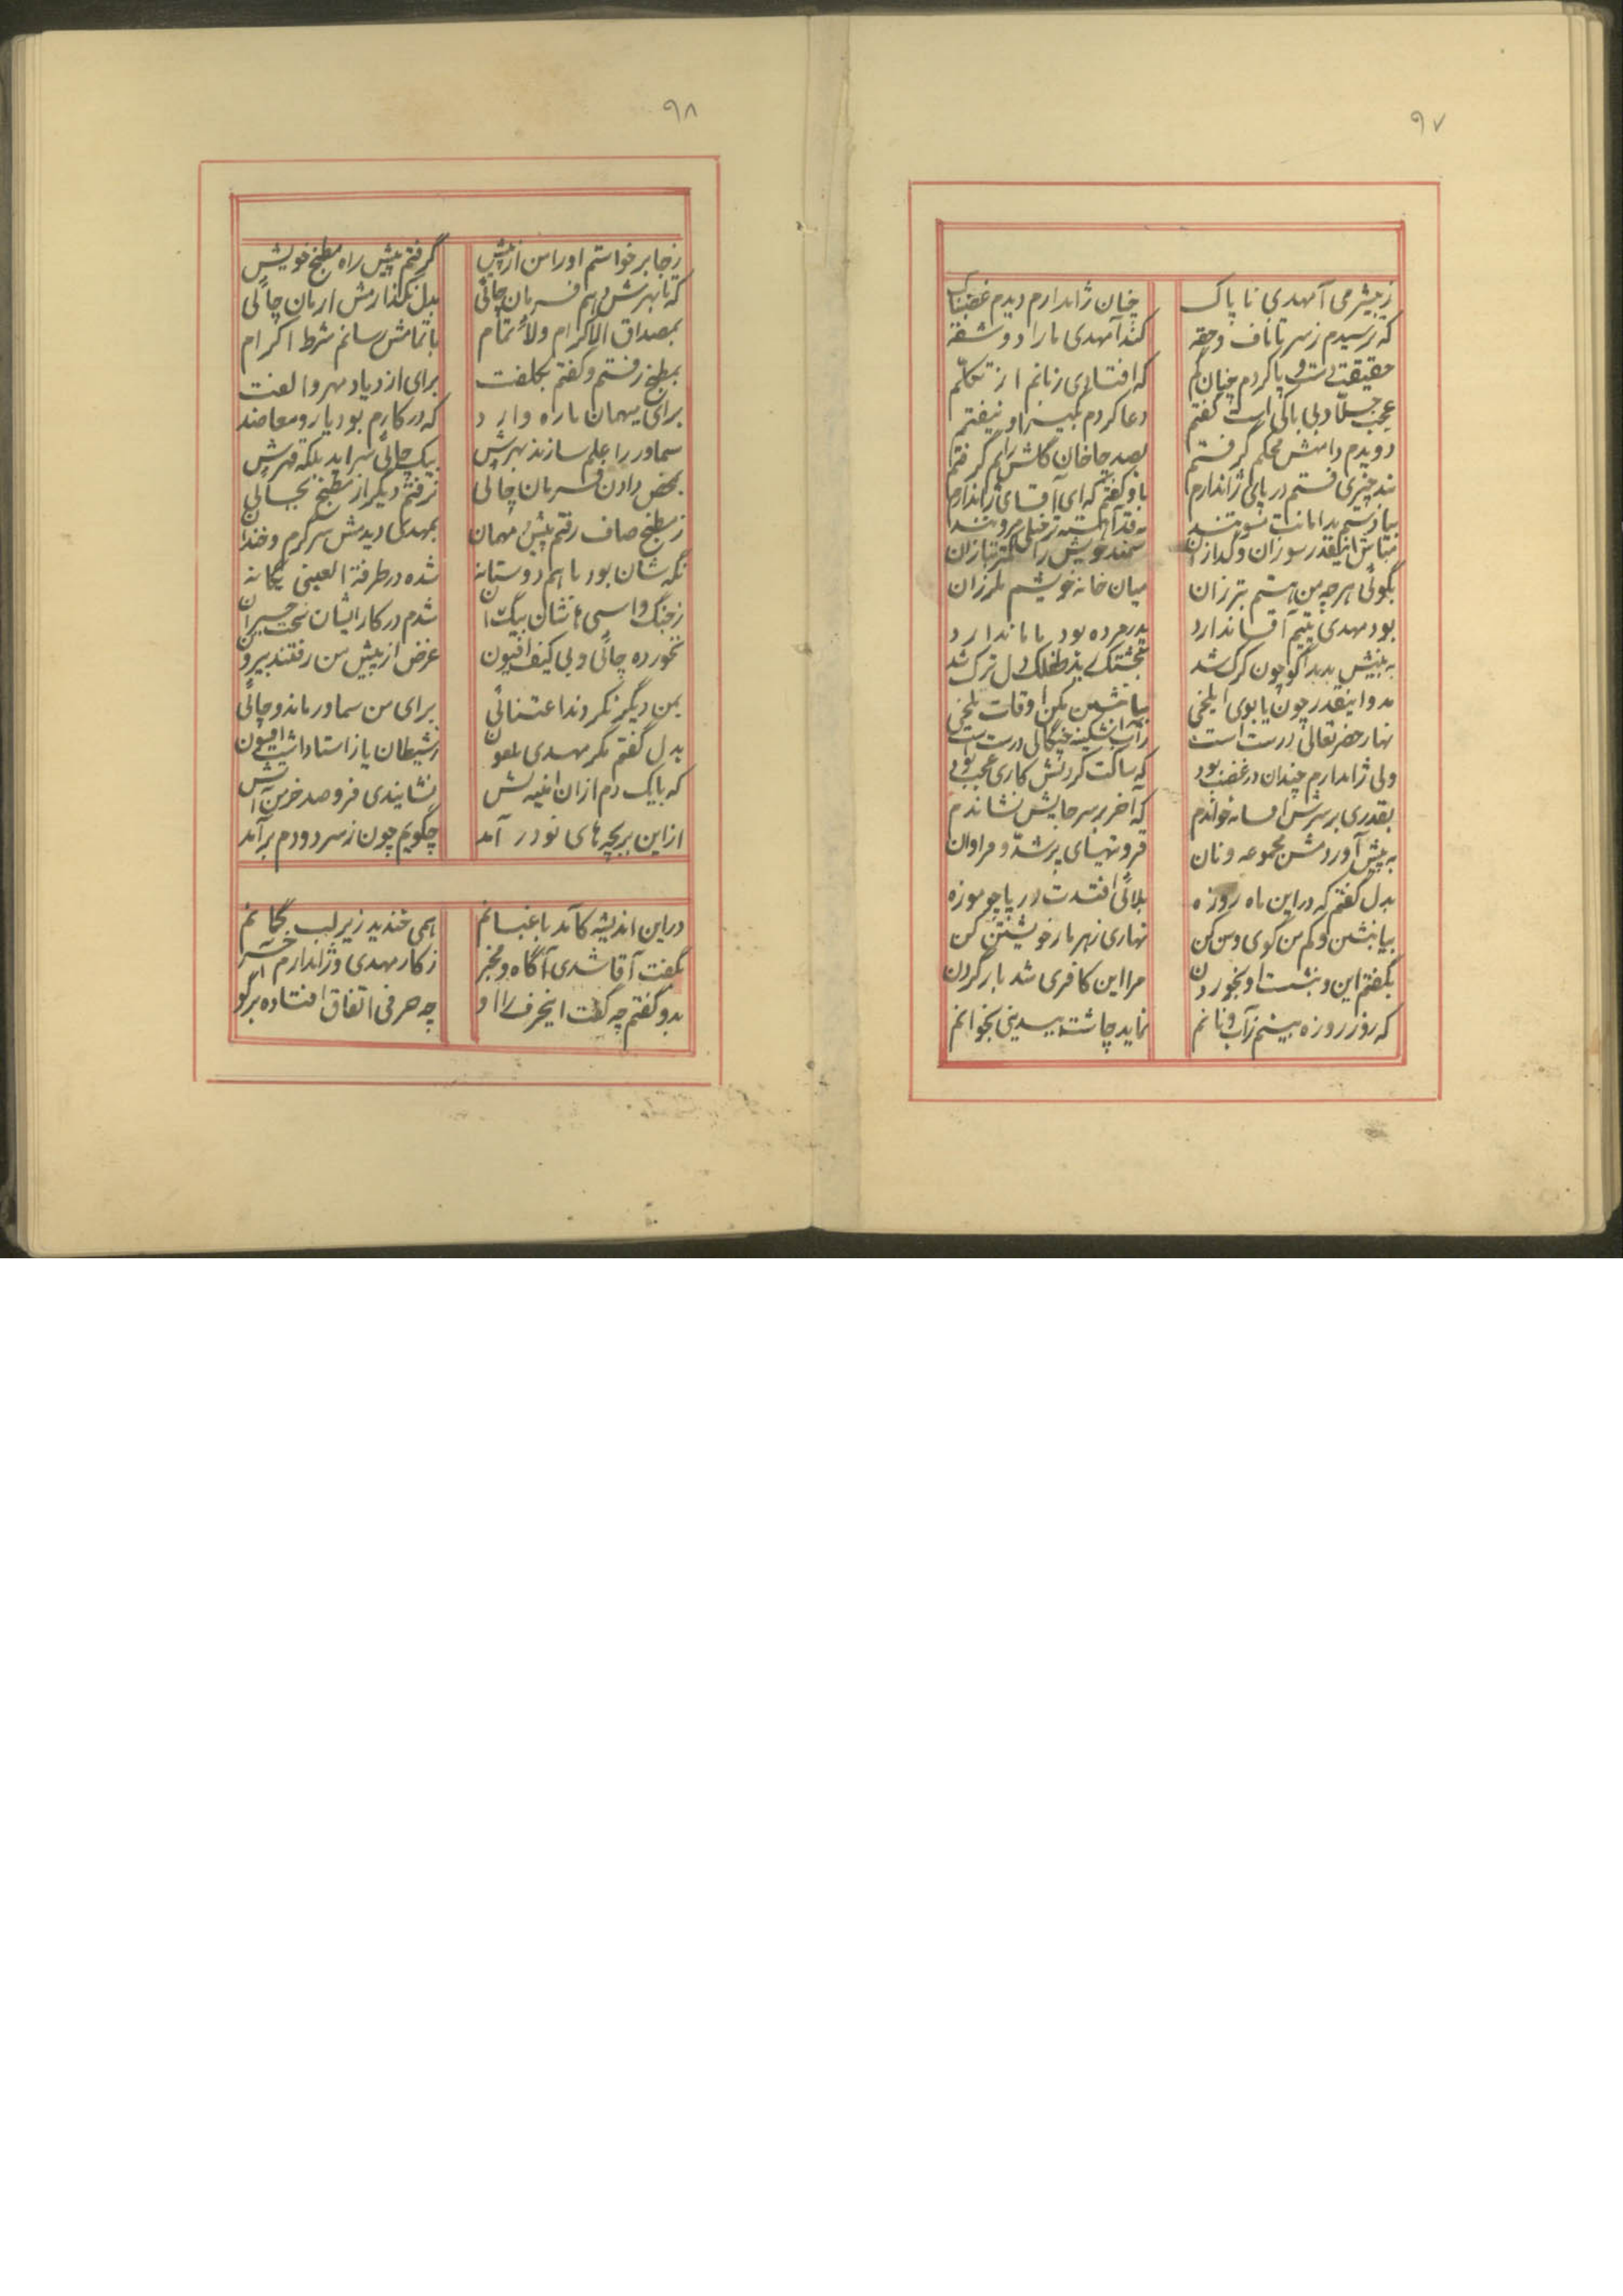 ۹۷
ز بیشرمی آمهدی ناپاک چنان ژاندارم دیدم غضبناک
که ترسیدم ز سر تا ناف و حقه کند آمهدی ما را دو شقه
حقیقت دست و پا کردم چنان گم که افتادی زبانم از تکلم
عجب جسّا و بی باکی است گفتم دعا کردم بمیرد او نیفتم
دویدم دامنش محکم گرفتم بصد چاخان گلش را هم گرفتم
فتم در پای ژاندارم باو گفتم که ای آقای ژاندارم
مباش اینقدر سوزان و گدازان سمند خویش را کمتر بتازان
بگوئی هر چه من هستم بتر زان میان خانه خویشم ملرزان
بود مهدی یتیم آقا ندارد پدر مرده بود ماما ندارد
به پیش بدبد اگو چون کرک شد
مدو اینقدر چون یابوی ایلخی بیا بنشین مکن اوقات تلخی
نهار حضر تعالی درست است
ولی ژاندارم چندان در غضب بود که ساکت کردنش کاری عجب بود
بقدری بر سرش افسانه خواندم که آخر بر سر جایش نشاندم
به پیش آوردمش مجموعه و نان فروتنهای پر شد و فراوان
بدل گفتم که در این ماه روزه بلائی افتدت در پا چو موزه
بیا بنشین و کم من گوی و من کن نهاری زهر مار خویشتن کن
بگفتم این و بنشست او بخوردن مرا این کافری شد بار گردن
که روز روزه بینم آب و نانم نماید چاشت بیدینی بخوانم
۹۸
ز جا برخواستم او را من از پیش گرفتم پیش راه مطبخ خویش
که تا بهرش دهم فرمان چائی بدل نگذارمش ارمان چائی
بمصداق الاکرام ولأتمام باتمامش رسانم شرط اکرام
بمطبخ رفتم و گفتم بکلفت برای ازدیاد مهر و الفت
برای میهمان ما راه وارد که در کارم بود یار و معاضد
سماور را علم سازند بهرش بیک چائی سر آید بلکه قهرش
بمحض دادن فرمان چائی نرفتم دیگر از مطبخ بجائی
ز مطبخ صاف رفتم پیش مهمان بمهدی دیدمش سرگرم و خندان
نگه شان بود با هم دوستانه شده در طرفة العینی یگانه
شدم در کار ایشان سخت حیران
نخورده چائی و بی کیف افیون غرض از پیش من رفتند بیرون
بمن دیگر نکردند اعتنائی برای من سماور ماند و چائی
بدل گفتم مگر مهدی ملعون ز شیطان یا ز استاد داشت افسون
که با یک دم از آن نشایندی فرو صد خرمن آتش
از این بر بچه های نو در آمد چگویم چون ز سر دودم برآمد
در این اندیشه کآمد باغبانم همی خندید زیر لب بجانم
بگفت آقا شدی آگاه و مخبر ز کار مهدی و ژاندارم آخر
بدو گفتم چه گفت اینحرف را او چه حرفی اتفاق افتاده بر گو